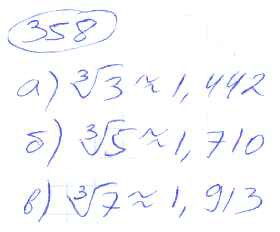 358
а) ∛3 ≈ 1,442
б) ∛5 ≈ 1,710
в) ∛7 ≈ 1,913